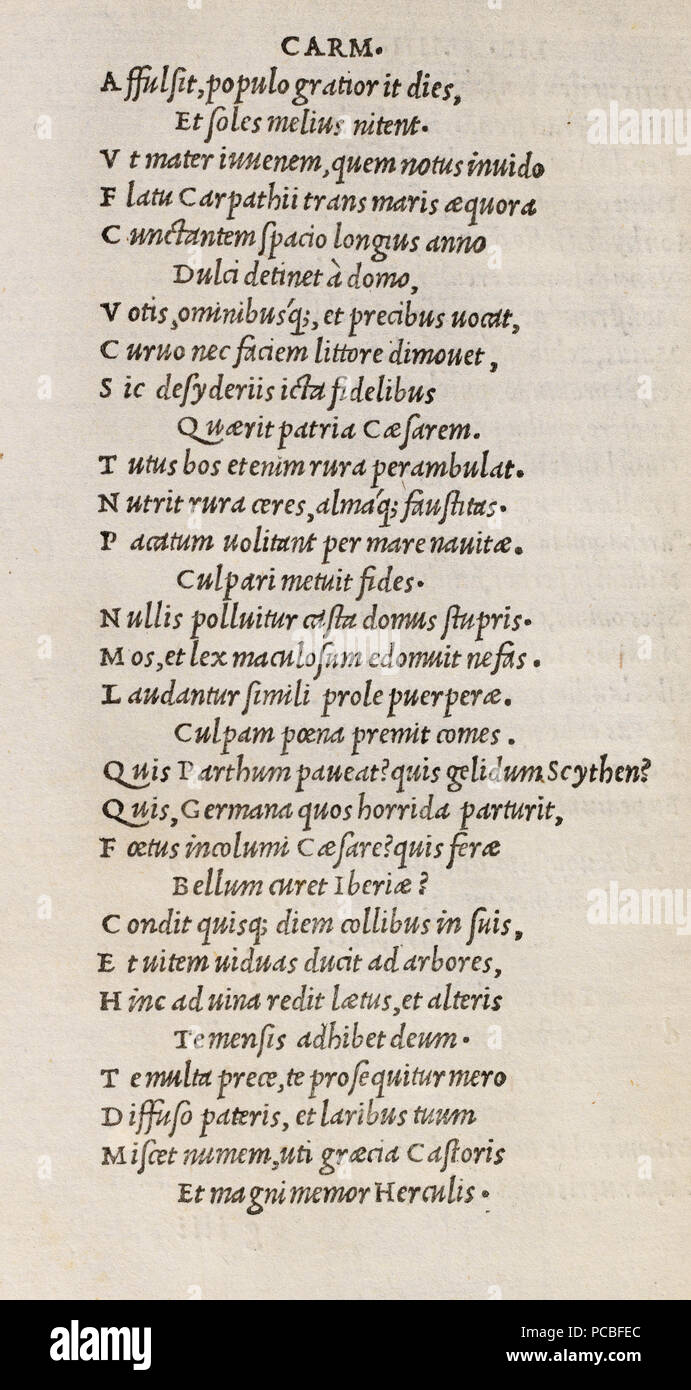 CARM.
A ffulsit, populo gratior it dies,
Et soles melius nitent.
V t mater iuuenem, quem notus inuido
F latu Carpathii trans maris æquora
C unctantem spacio longius anno
Dulci detinet à domo,
V otis, ominibusq́;, et precibus uocat,
C uruo nec faciem littore dimouet,
S ic desyderiis icta fidelibus
Quærit patria Cæsarem.
T utus bos etenim rura perambulat.
N utrit rura ceres, almaq́; faustitas.
P acatum uolitant per mare nauitæ.
Culpari metuit fides.
N ullis polluitur casta domus stupris.
M os, et lex maculosum edomuit nefas.
L audantur simili prole puerperæ.
Culpam pœna premit comes.
Quis Parthum paueat? quis gelidum Scythen?
Quis, Germana quos horrida parturit,
F œtus incolumi Cæsare? quis feræ
Bellum curet Iberiæ?
C ondit quisq; diem collibus in suis,
E t uitem uiduas ducit ad arbores,
H inc ad uina redit lætus, et alteris
Te mensis adhibet deum.
T e multa prece, te prosequitur mero
D iffuso pateris, et laribus tuum
M iscet numem, uti græcia Castoris
Et magni memor Herculis.
alamy
Image ID: PCBFEC
www.alamy.com